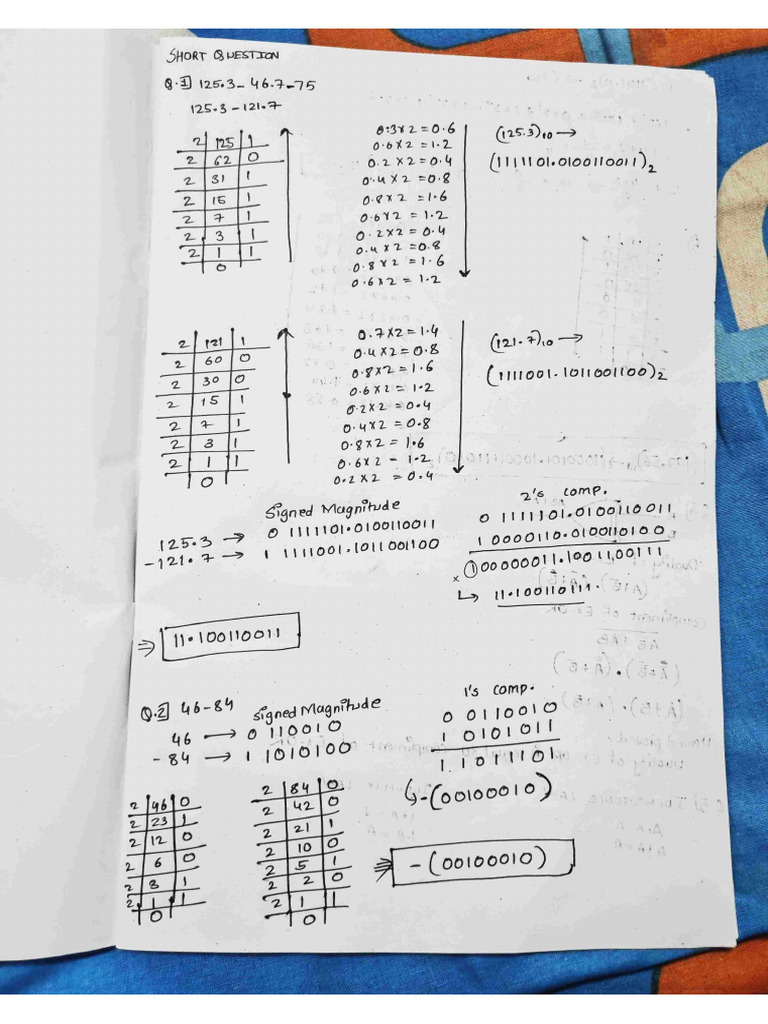 SHORT QUESTION
Q.1 125.3- 46.7-75
125.3-121.7
2 125 1
2 62 0
2 31 1
2 15 1
2 7 1
2 3 1
2 1 1
0
0.3x2=0.6
0.6x2=1.2
0.2x2=0.4
0.4x2=0.8
0.8x2=1.6
0.6x2=1.2
0.2x2=0.4
0.4x2=0.8
0.8x2=1.6
0.6x2=1.2
(125.3)10→
(1111101.0100110011)2
2 121 1
2 60 0
2 30 0
2 15 1
2 7 1
2 3 1
2 1 1
0
0.7x2=1.4
0.4x2=0.8
0.8x2=1.6
0.6x2=1.2
0.2x2=0.4
0.4x2=0.8
0.8x2=1.6
0.6x2- 1.2
0.2x2=0.4
(121.7)10→
(1111001.1011001100)2
Signed Magnitude
125.3 → 0 1111101.0100110011
-121.7 → 1 1111001.1011001100
2's comp.
0 1111101.0100110011
1 0000110.0100110100
100000011.1001100111
x ↳ 11.100110111.
⇒ 11.100110011
Q.2 46-84
Signed Magnitude
46 → 0 110010
-84 → 1 1010100
1's comp.
0 0110010
1 0101011
1 1011101
↳-(00100010)
2 46 0
2 23 1
2 12 0
2 6 0
2 3 1
2 1 1
0
2 84 0
2 42 0
2 21 1
2 10 0
2 5 1
2 2 0
2 1 1
0
⇒ -(00100010)